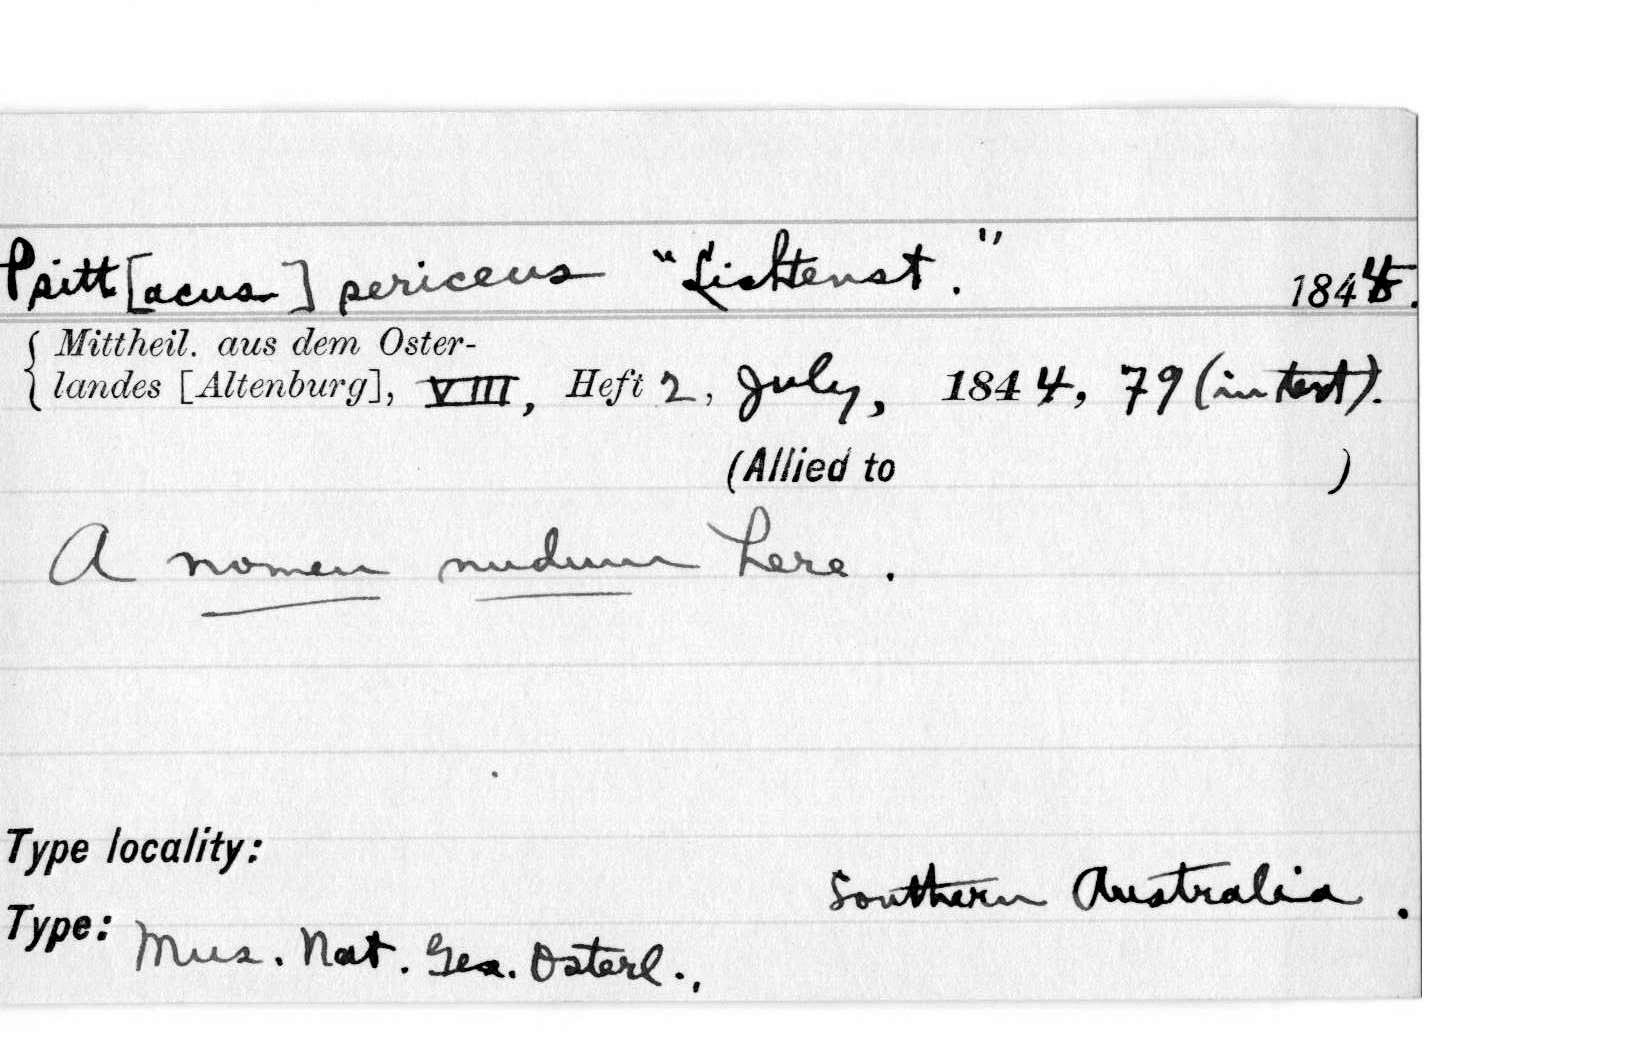 Psitt[acus] periceus "Lichtenst." 1844.
Mittheil. aus dem Oster-
landes [Altenburg], VIII, Heft 2, July, 1844, 79 (in text).
(Allied to )
A nomen nudum here.
Type locality:
Southern Australia.
Type: Mus. Nat. Ges. Osterl.,